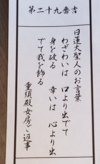 第二十九番吉
日蓮大聖人のお言葉
わざわいは 口より出でて
身を破る
幸いは 心より出
でて我を飾る
重須殿女房ご返事